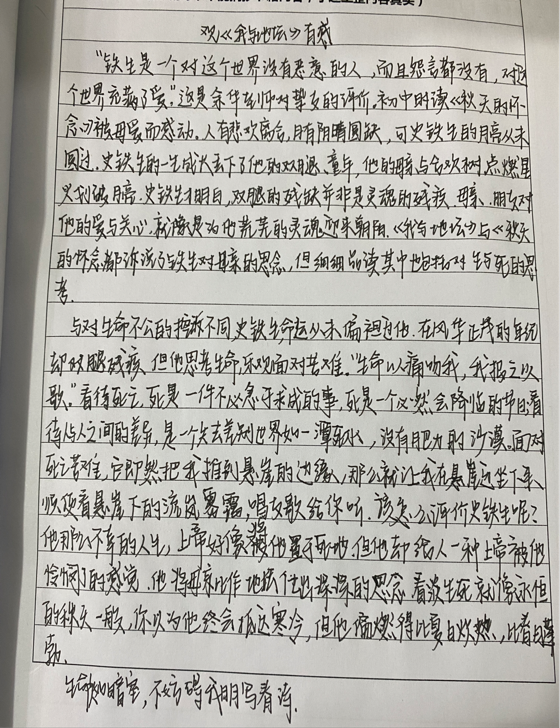 观《我与地坛》有感
"铁生是一个对这个世界没有恶意的人,而且怨言都没有,对这
个世界充满了爱。"这是余华老师对挚友的评价。初中时读《秋天的怀
念》被母爱而感动。人有悲欢离合,月有阴晴圆缺,可史铁生的月亮从未
圆过。史铁生的一生成长丢下了他的双腿、童年,他的母亲与合欢树点燃星
火划破月亮。史铁生明白,双腿的残缺并非是灵魂的残疾。母亲、朋友对
他的爱与关心,就像是为他荒芜的灵魂迎来朝阳。《我与地坛》与《秋天
的怀念》都诉说了铁生对母亲的思念,但细细品读其中也包括对生与死的思
考。
与对生命不公的控诉不同史铁生命运从未偏袒过他。在风华正茂的年纪
却双腿残疾,但他思考生命,乐观面对苦难。"生命以痛吻我,我报之以
歌。"看待死亡,死是一件不必急于求成的事,死是一个必然会降临的节日看
待人之间的差异,是一个失去差别世界如一潭死水,没有肥力的沙漠。面对
死亡苦难,它既然把我推到悬崖的边缘,那么就让我在悬崖边坐下来,
顺便看悬崖下的流岚雾霭,唱支歌给你听。该怎么评价史铁生呢?
他那么不幸的人生,上帝好像将他置于死地,但他却给人一种上帝被他
怜悯了的感觉。他将母亲比作地坛付出深深的思念看淡生死就像永恒
的秋天一般,你以为他终会抵达寒冷,但他偏燃得比夏日炽热,比春日蓬
勃。
生命如暗室,不妨碍我明写春诗。